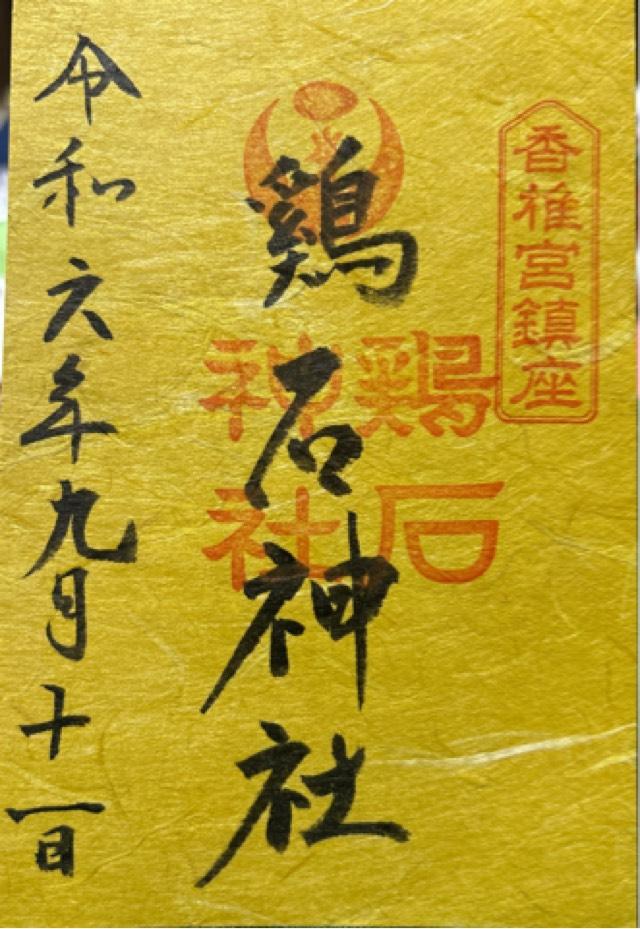 香椎宮鎮座
鷄石神社
鷄石
神社
令和六年九月十一日